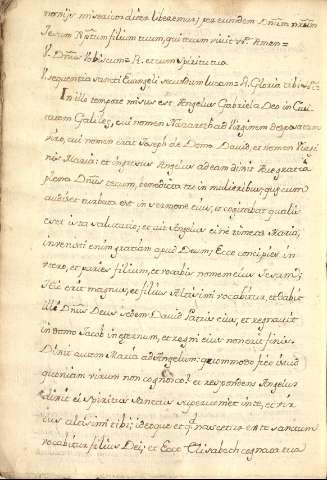 nominis misericorditer liberemur; per eundem Dnum nrum
Jesum Xptum filium tuum, qui tecum vivit etc. Amen=
V. Dnus Vobiscum= R. et cum Spiritu tuo
V. sequentia sancti Evangelii secundum lucam= R. Gloria tibi
In illo tempore misus est Angelus Gabriel a Deo in Civi
tatem Galileę, cui nomen Nazareth ad Virginem desponsatam
viro, cui nomen erat Joseph de Domo David, et nomen Virgi
nis Maria: et ingresus Angelus ad eam dixit Ave gratia
plena Dnus tecum, benedicta tu in mulieribus; quę cum
audiset turbata est in sermone eius, et cogitabat qualis
eset ista salutatio; et ait Angelus ei ne timeas Maria,
invenisti enim gratiam apud Deum; Ecce concipies in
utero, et paries filium, et vocabis nomen eius Jesum;
Hic erit magnus, et filius Altisimi vocabitur, et dabit
illi Dnus Deus sedem David Patris eius, et regnavit
in domo Jacob in eternum, et regni eius non erit finis.
Dixit autem Maria ad Angelum: quomodo fiet istud
quoniam virum non cognosco? et respondens Angelus
dixit ei Spiritus Sanctus superveniet in te, et vir
tus altisimi tibi; ideoque et qd. nascetur ex te sanctum
vocabitur filius Dei; et Ecce Elisabeth cognata tua